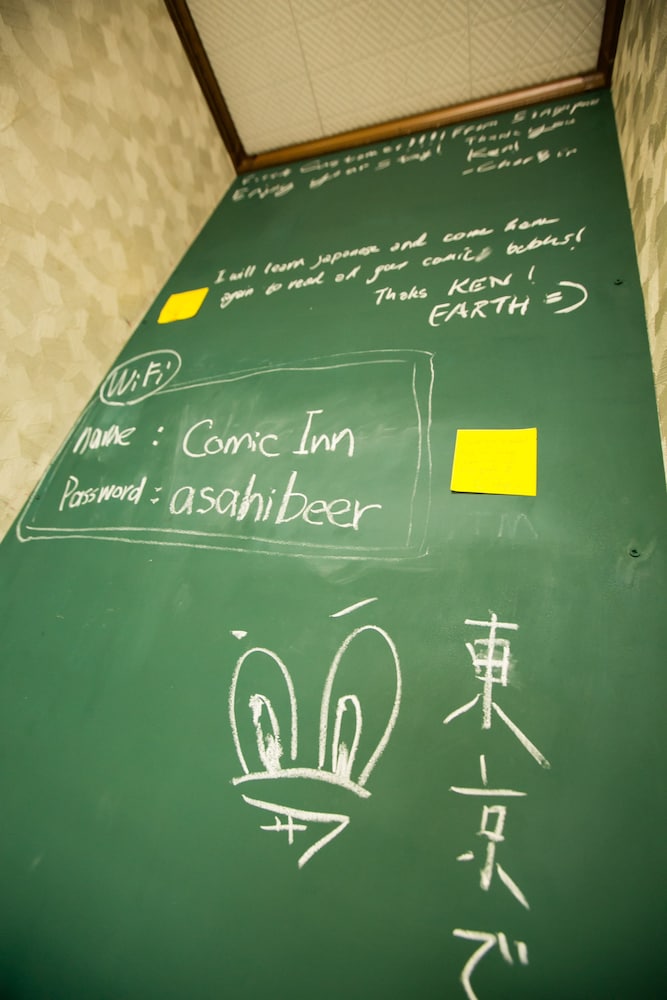 First Customer!!!! From Singapore
Enjoy your stay! Thank you
Ken!
I will learn japanese and come here
again to read all your comic books!
Thaks KEN!
EARTH =)
WiFi
name : Comic Inn
Password : asahibeer
東京で